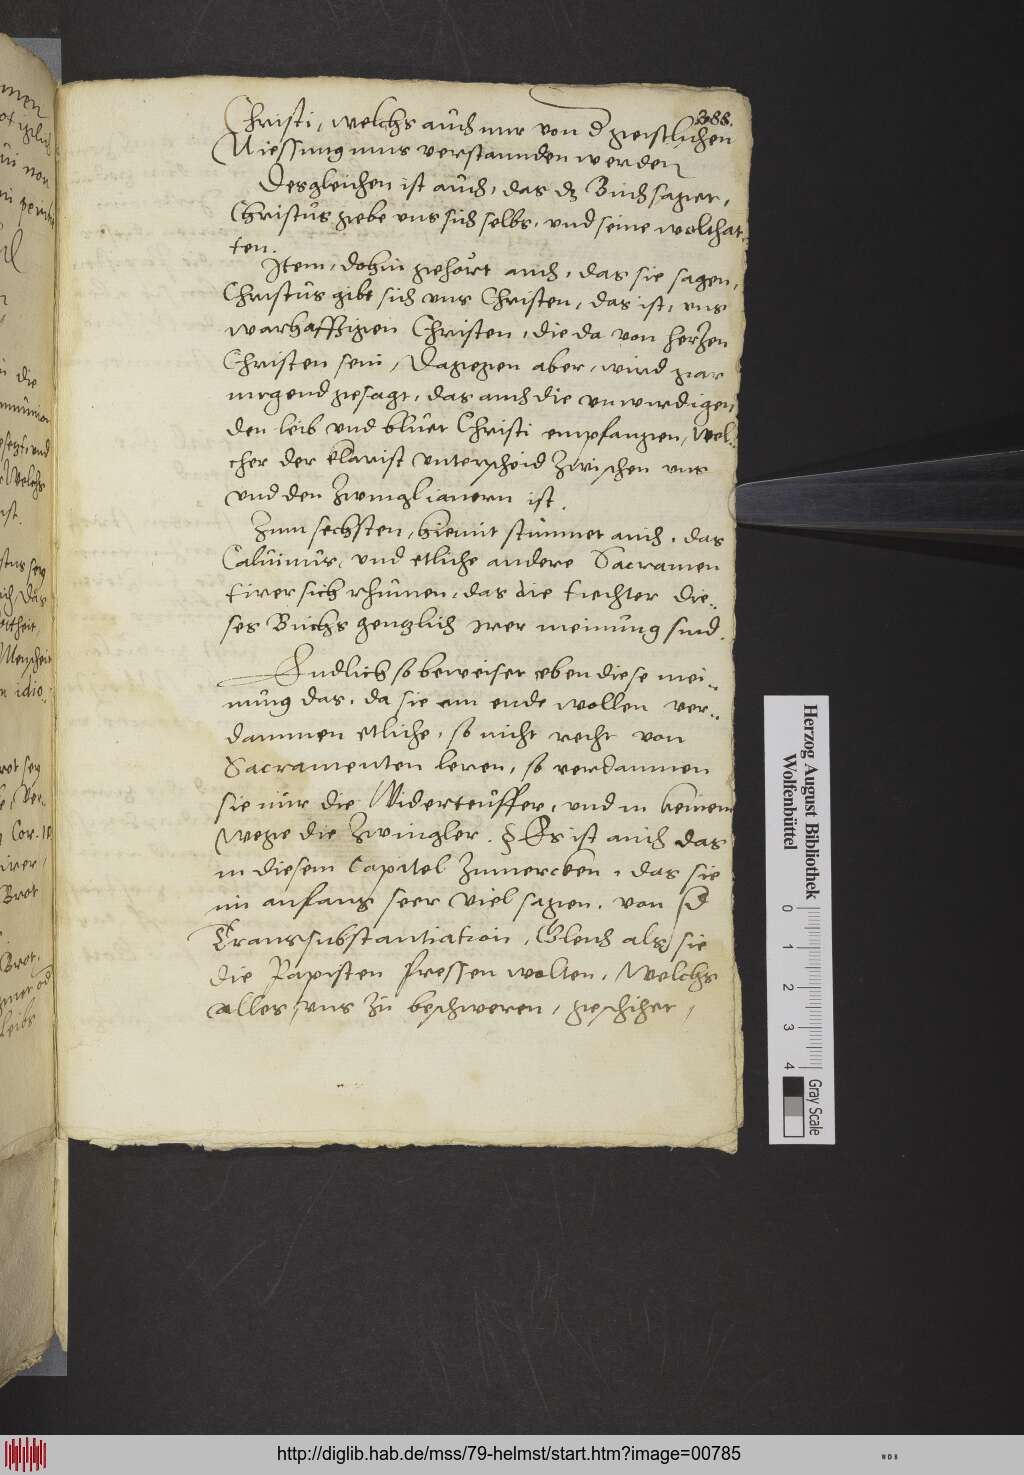 388.
Christi, welchs auch nur von d geistlichen
Niessung mus verstannden werden
Desgleichen ist auch, das dz Buch saget,
Christus gebe uns sich selbs, und seine wolthat
ten.
Item, dohin gehört auch, das sie sagen,
Christus gibt sich vns Christen, das ist, vns
warhafftigen Christen, die da von hertzen
Christen sein, Dagegen aber, wird gar
nirgend gesagt, das auch die unwirdigen
den leib vnd bluet Christi empfangen, Wel-
cher der klarist vnterscheid zwischen vns
vnd den Zwinglianern ist.
Zum sechsten, hiemit stimmet auch, das
Caluinus, vnd etliche andere Sacramen
tirer sich rhümen, das die tiechter die-
ses Buchs gentzlich irer meinung sind.
Endlich so beweiset eben diese mei-
nung das, da sie am ende wollen ver-
dammen etliche, so nicht recht von
Sacramenten leren, so verdammen
sie nur die Widerteuffer, und in keinem
Wege die Zwingler. Es ist auch das
in diesem Capitel zumercken, das sie
im anfang seer viel sagen, von d
Transsubstantiation, Gleich als sie
die Papisten fressen wolten, Welchs
alles, vns zu beschweren, geschihet,
Herzog August Bibliothek
Wolfenbüttel
0 1 2 3 4
Gray Scale
http://diglib.hab.de/mss/79-helmst/start.htm?image=00785